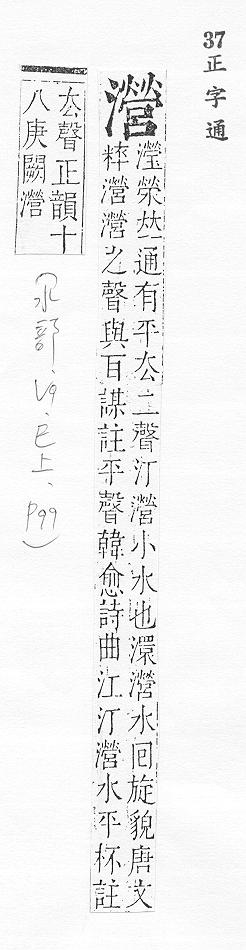 37 正字通
瀯
瀅濴𠀤通有平去二聲汀瀯小水也澴瀯水回旋貌唐文
粹瀯瀯之聲與百謀註平聲韓愈詩曲江汀瀯水平杯註
去聲正韻十
八庚闕瀯
(水部、19.巳上、P99)